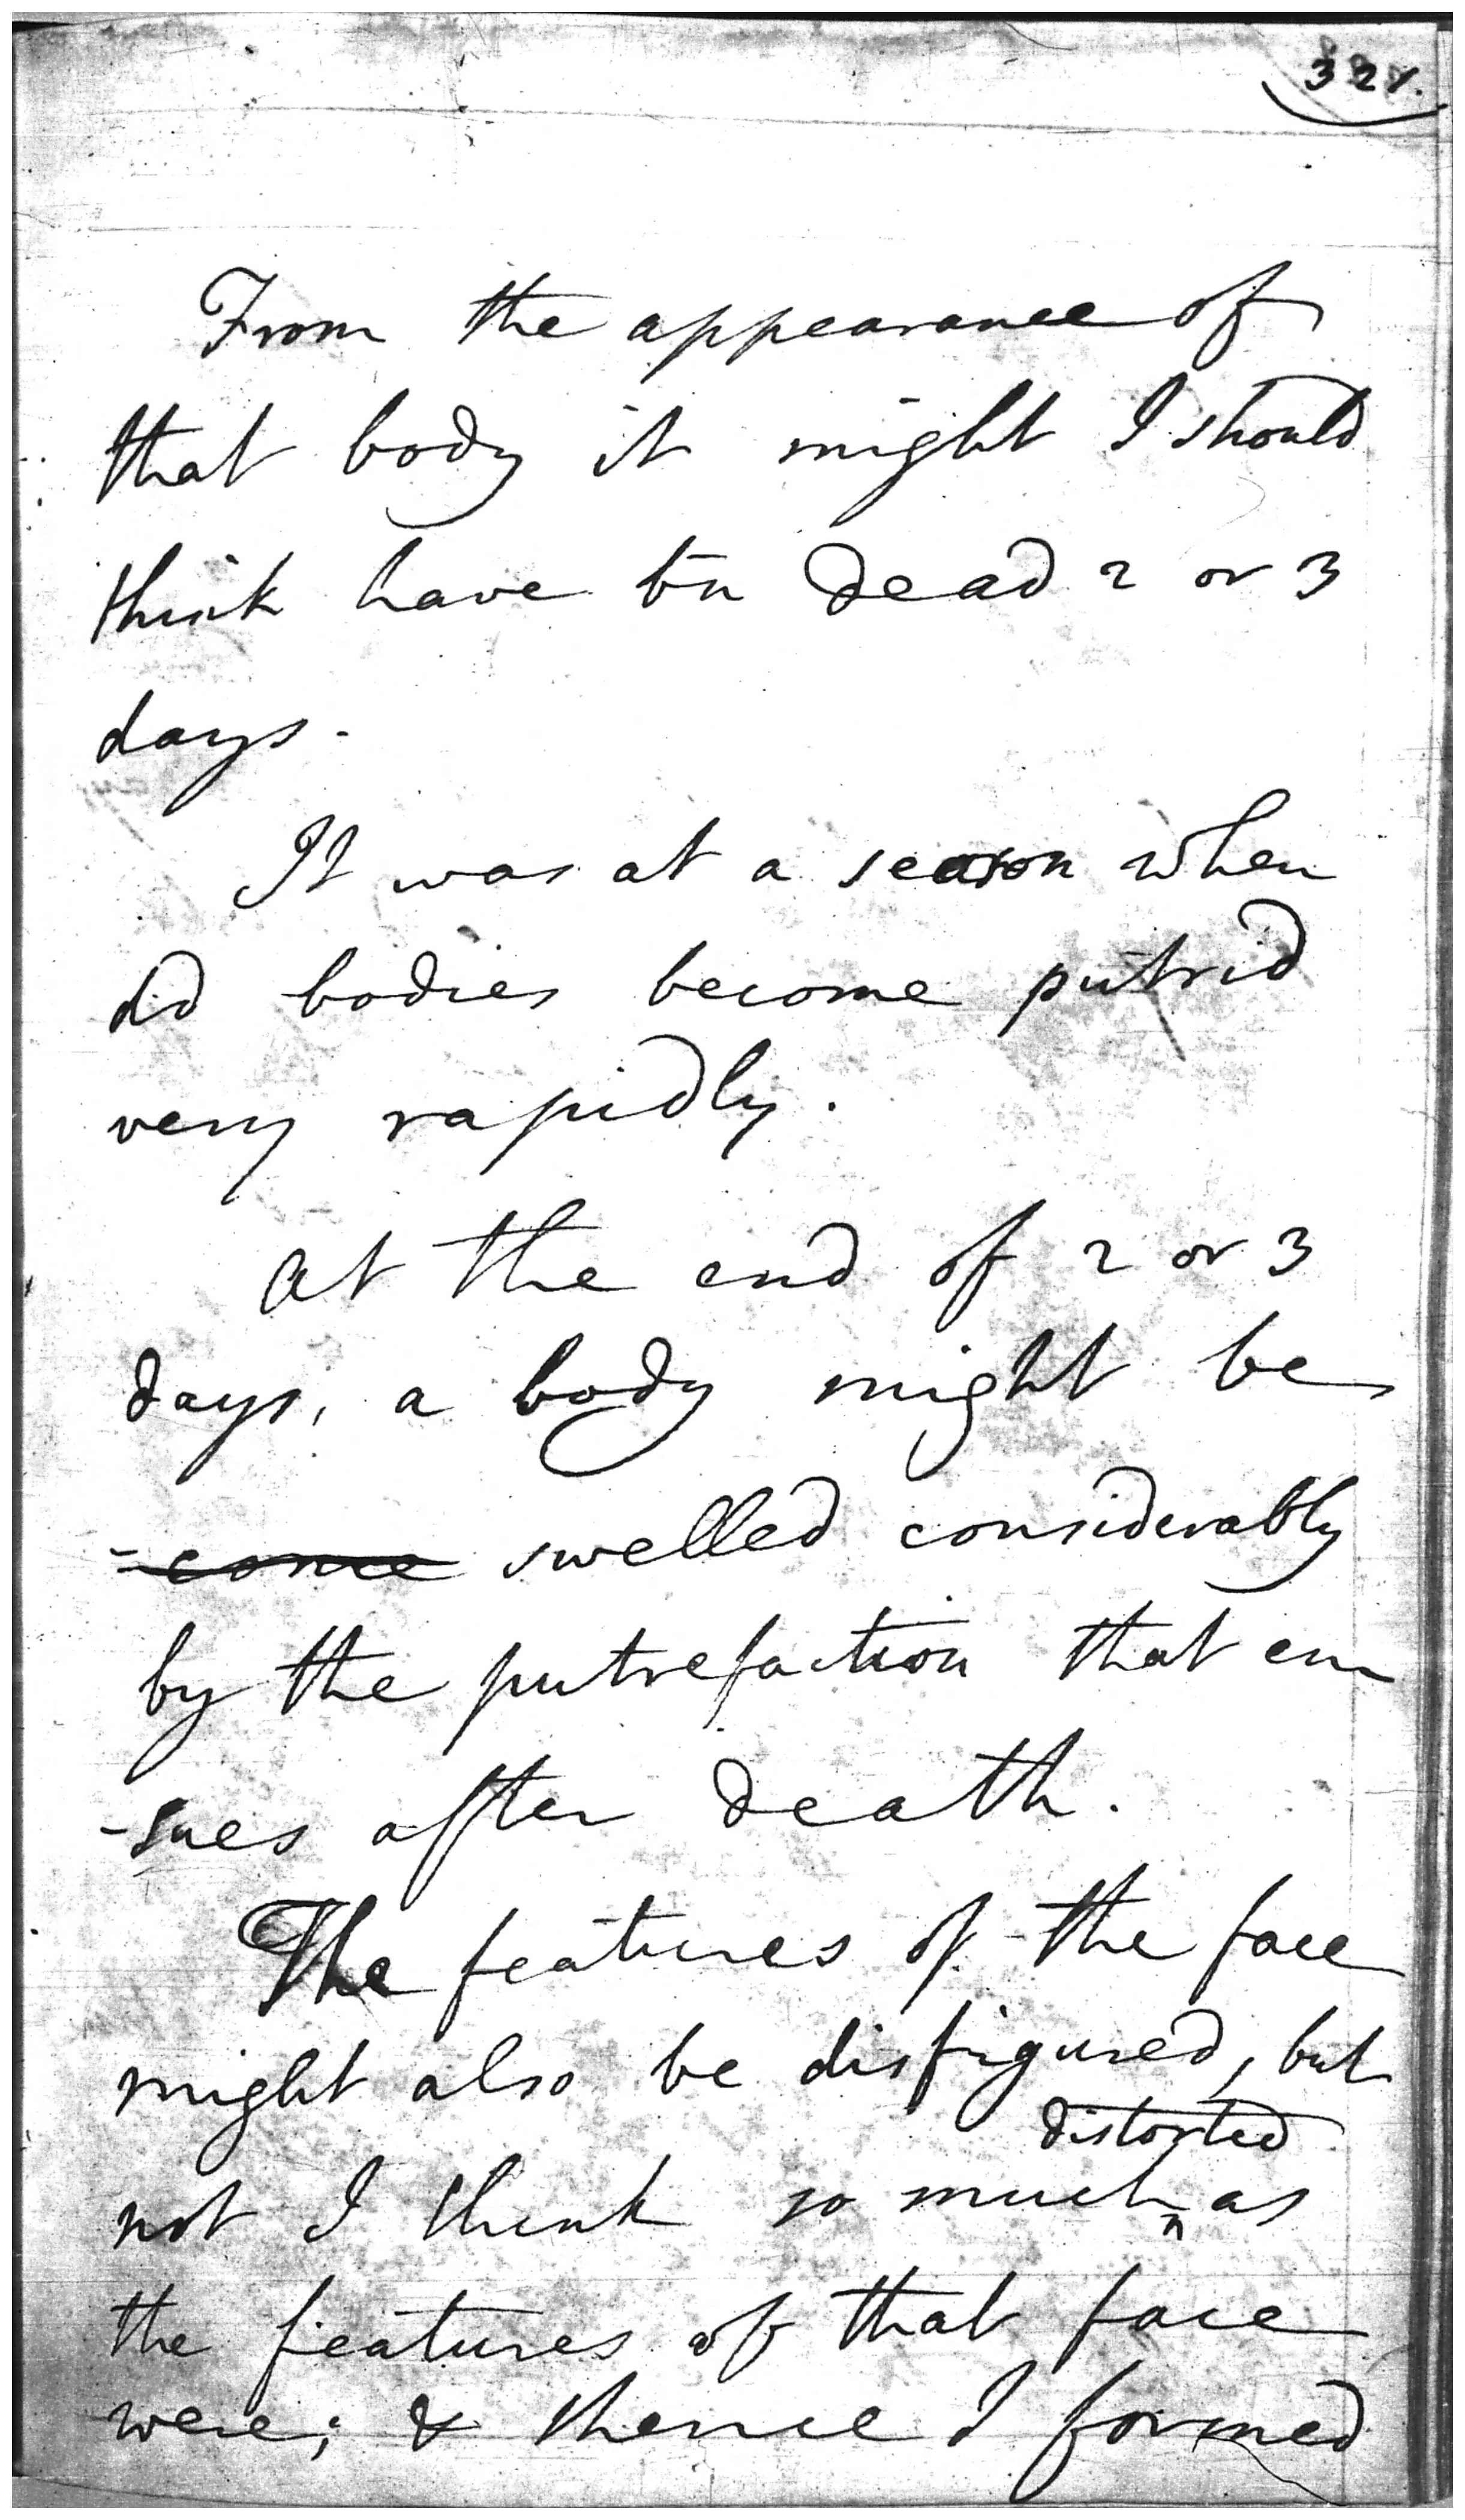 327.
From the appearance of
that body it might I should
think have bn dead 2 or 3
days.
It was at a season when
dd bodies become putrid
very rapidly.
At the end of 2 or 3
days, a body might be
-come swelled considerably
by the putrefaction that en
-sues after death.
The features of the face
might also be disfigured, but
distorted
not I think so much as
the features of that face
were; & thence I formed